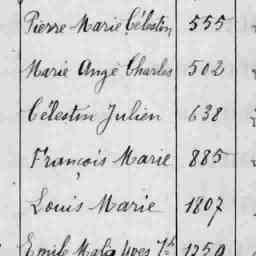 Pierre Marie Célestin 555
Marie Ange Charles 502
Célestin Julien 638
François Marie 885
Louis Marie 1807
Emile Yves 1250